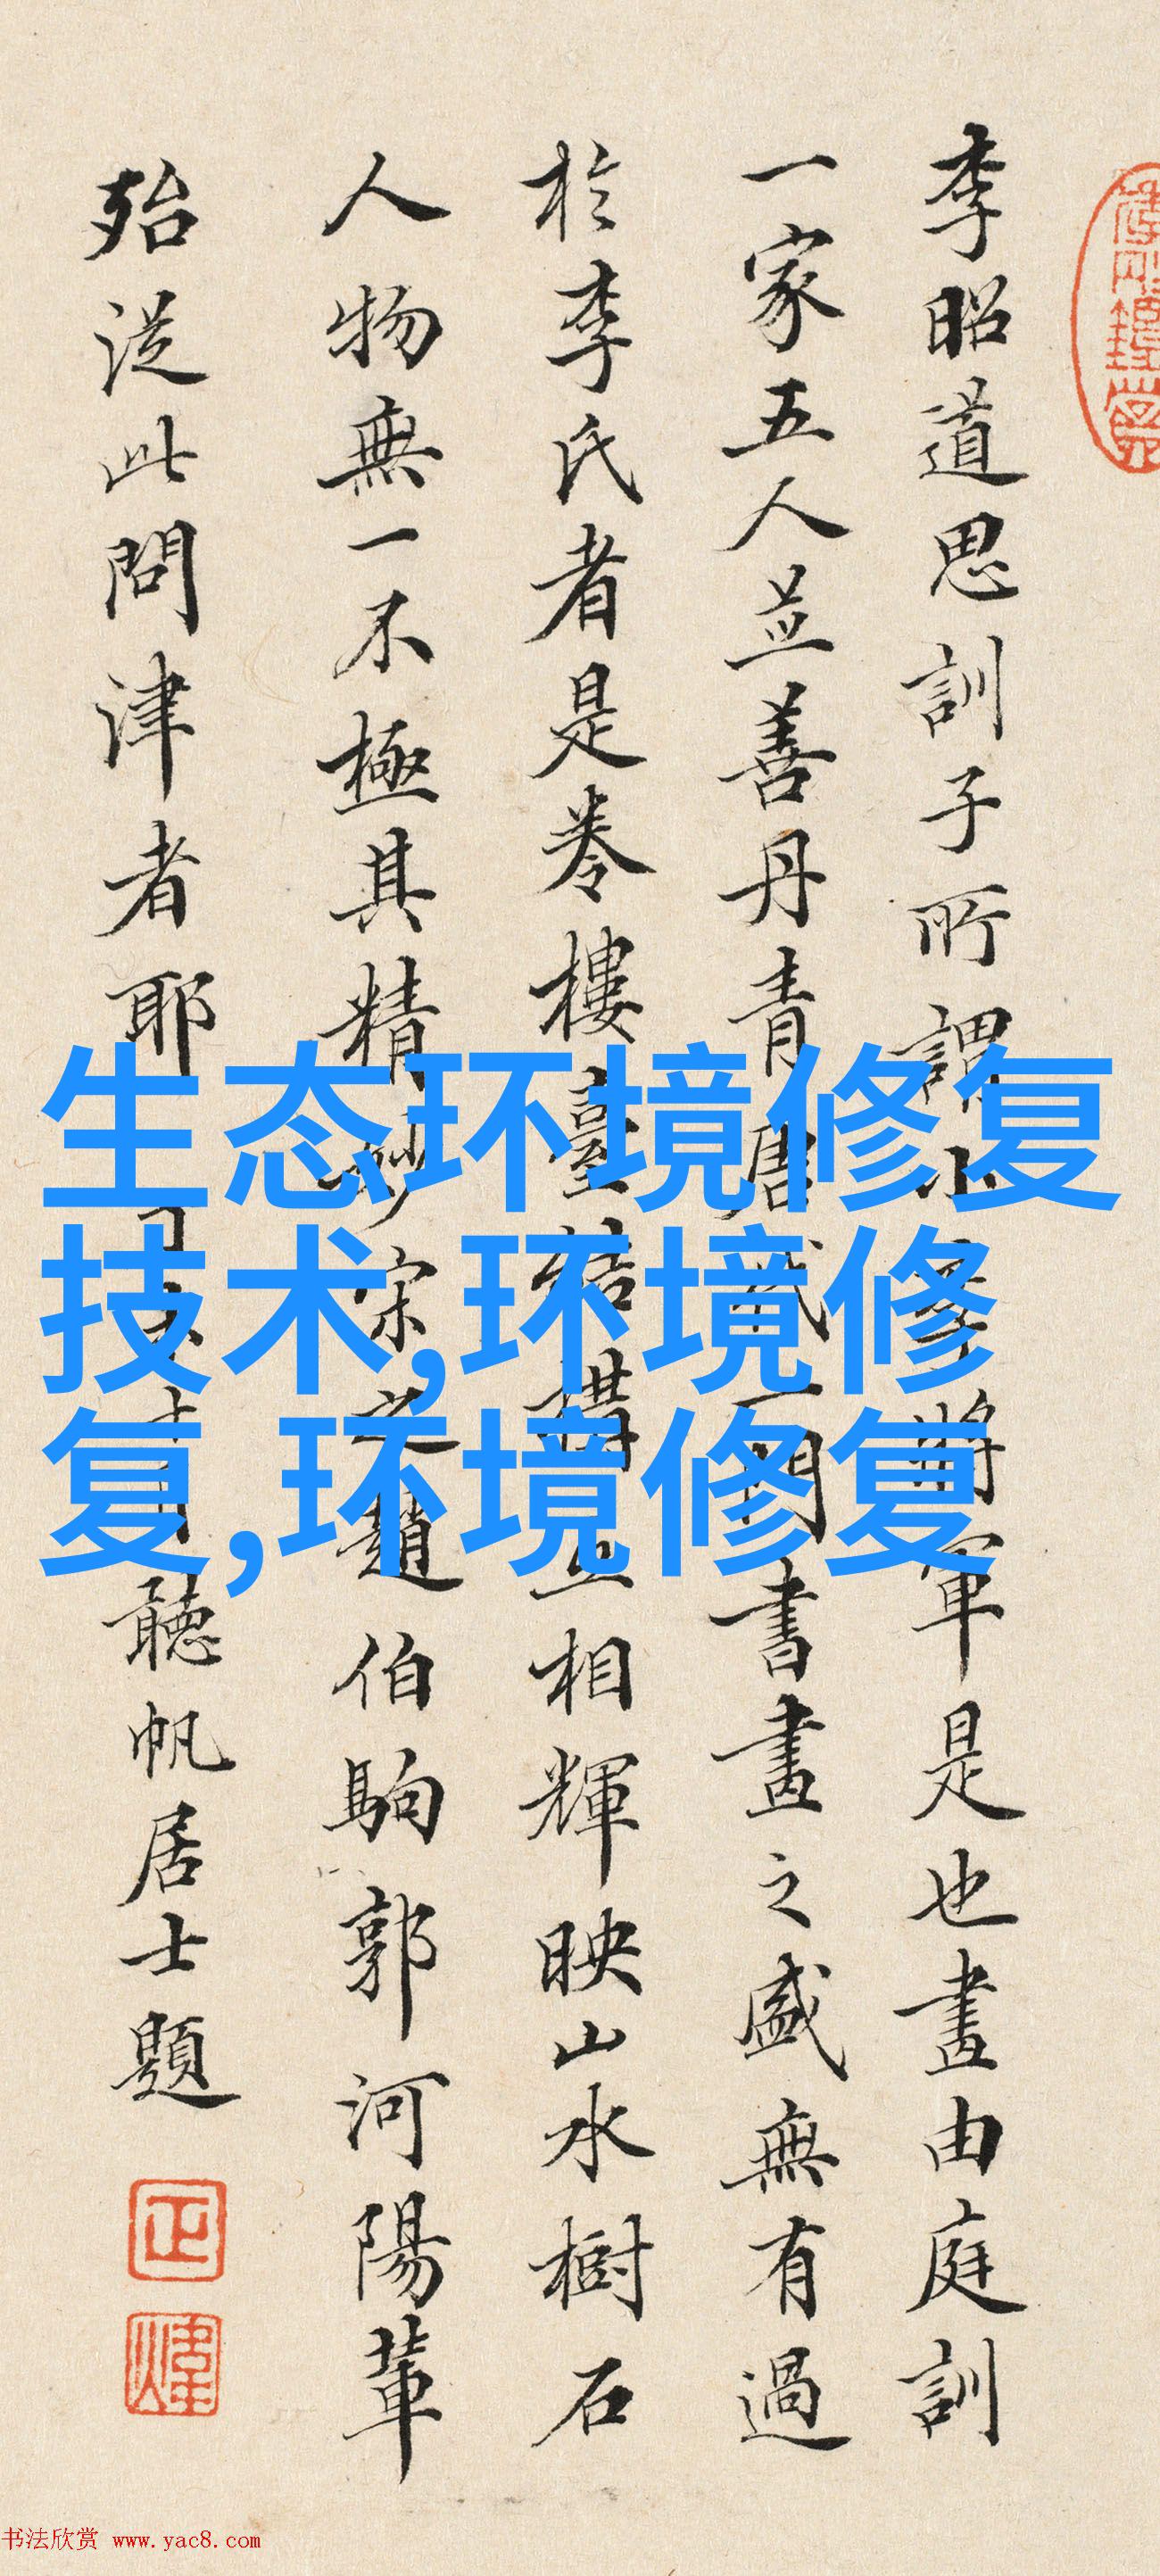 李昭道思訓子所謂小李將軍是也畫由庭訓
一家五人並善丹青唐代一門書畫之盛無有過
於李氏者是卷樓臺結構互相輝映山水樹石
人物無一不極其精妙宋之趙伯駒郭河陽輩
殆從此問津者耶
聽帆居士題
生态环境修复
技术,环境修
复,环境修复
书法欣赏 www.yac8.com